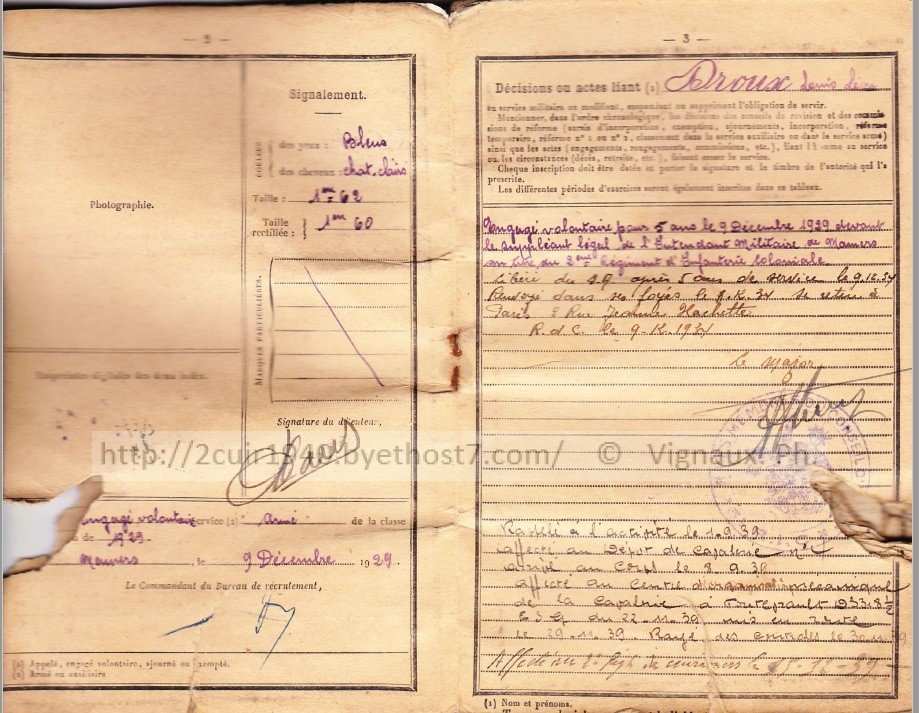 — 3 —
Signalement.
COULEUR
des yeux : Bleus
des cheveux : chat. clairs
Taille : 1m 62
Taille rectifiée : 1m 60
Photographie.
MARQUES PARTICULIÈRES.
Impressions digitales des deux index.
Signature du titulaire,
http://2cuir1940.byethost7.com/ © Vignaux. Ph.
engagé volontaire service (2) armé de la classe
de 1929.
Mamers, le 9 Décembre 1929
Le Commandant du Bureau de recrutement,
(1) Appelé, engagé volontaire, ajourné ou exempté.
(2) Armé ou auxiliaire
Décisions ou actes liant (1) Droux Louis Léon
au service militaire ou modifiant, suspendant ou supprimant l'obligation de servir.
Mentionner, dans l'ordre chronologique, les décisions des conseils de revision et des commissions
de réforme (sursis d'incorporation, exemption, ajournements, incorporation, réforme
temporaire, réforme n° 1 ou n° 2, classement dans le service auxiliaire ou dans le service armé)
ainsi que les actes (engagements, rengagements, commissions, etc.), liant l'homme au service
ou les circonstances (décès, retraite, etc.), faisant cesser le service.
Chaque inscription doit être datée et porter la signature et le timbre de l'autorité qui l'a
prescrite.
Les différentes périodes d'exercices seront également inscrites dans ce tableau.
Engagé volontaire pour 5 ans le 9 Décembre 1929 devant
le suppléant légal de l'Intendant Militaire de Mamers
au titre du 2ème Régiment d'Infanterie Coloniale
Libéré du S.A après 5 ans de service le 9.12.34
Renvoyé dans ses foyers le Se retire à
Paris 8 Rue Jeanne Hachette
R.d.C. le 1934
Le major
Rappelé à l'activité le 1.9.39
affecté au Dépôt de Cavalerie n°
arrivé au Corps le 8.9.39
affecté au Centre d'organisation mécanique
de la Cavalerie à Fontevrault
du 22.11.39 mis en route
le 29.11.39. Rayé des controles le 30.11.39
Affecté au 2e Régt de cuirassiers le
(1) Nom et prénoms.